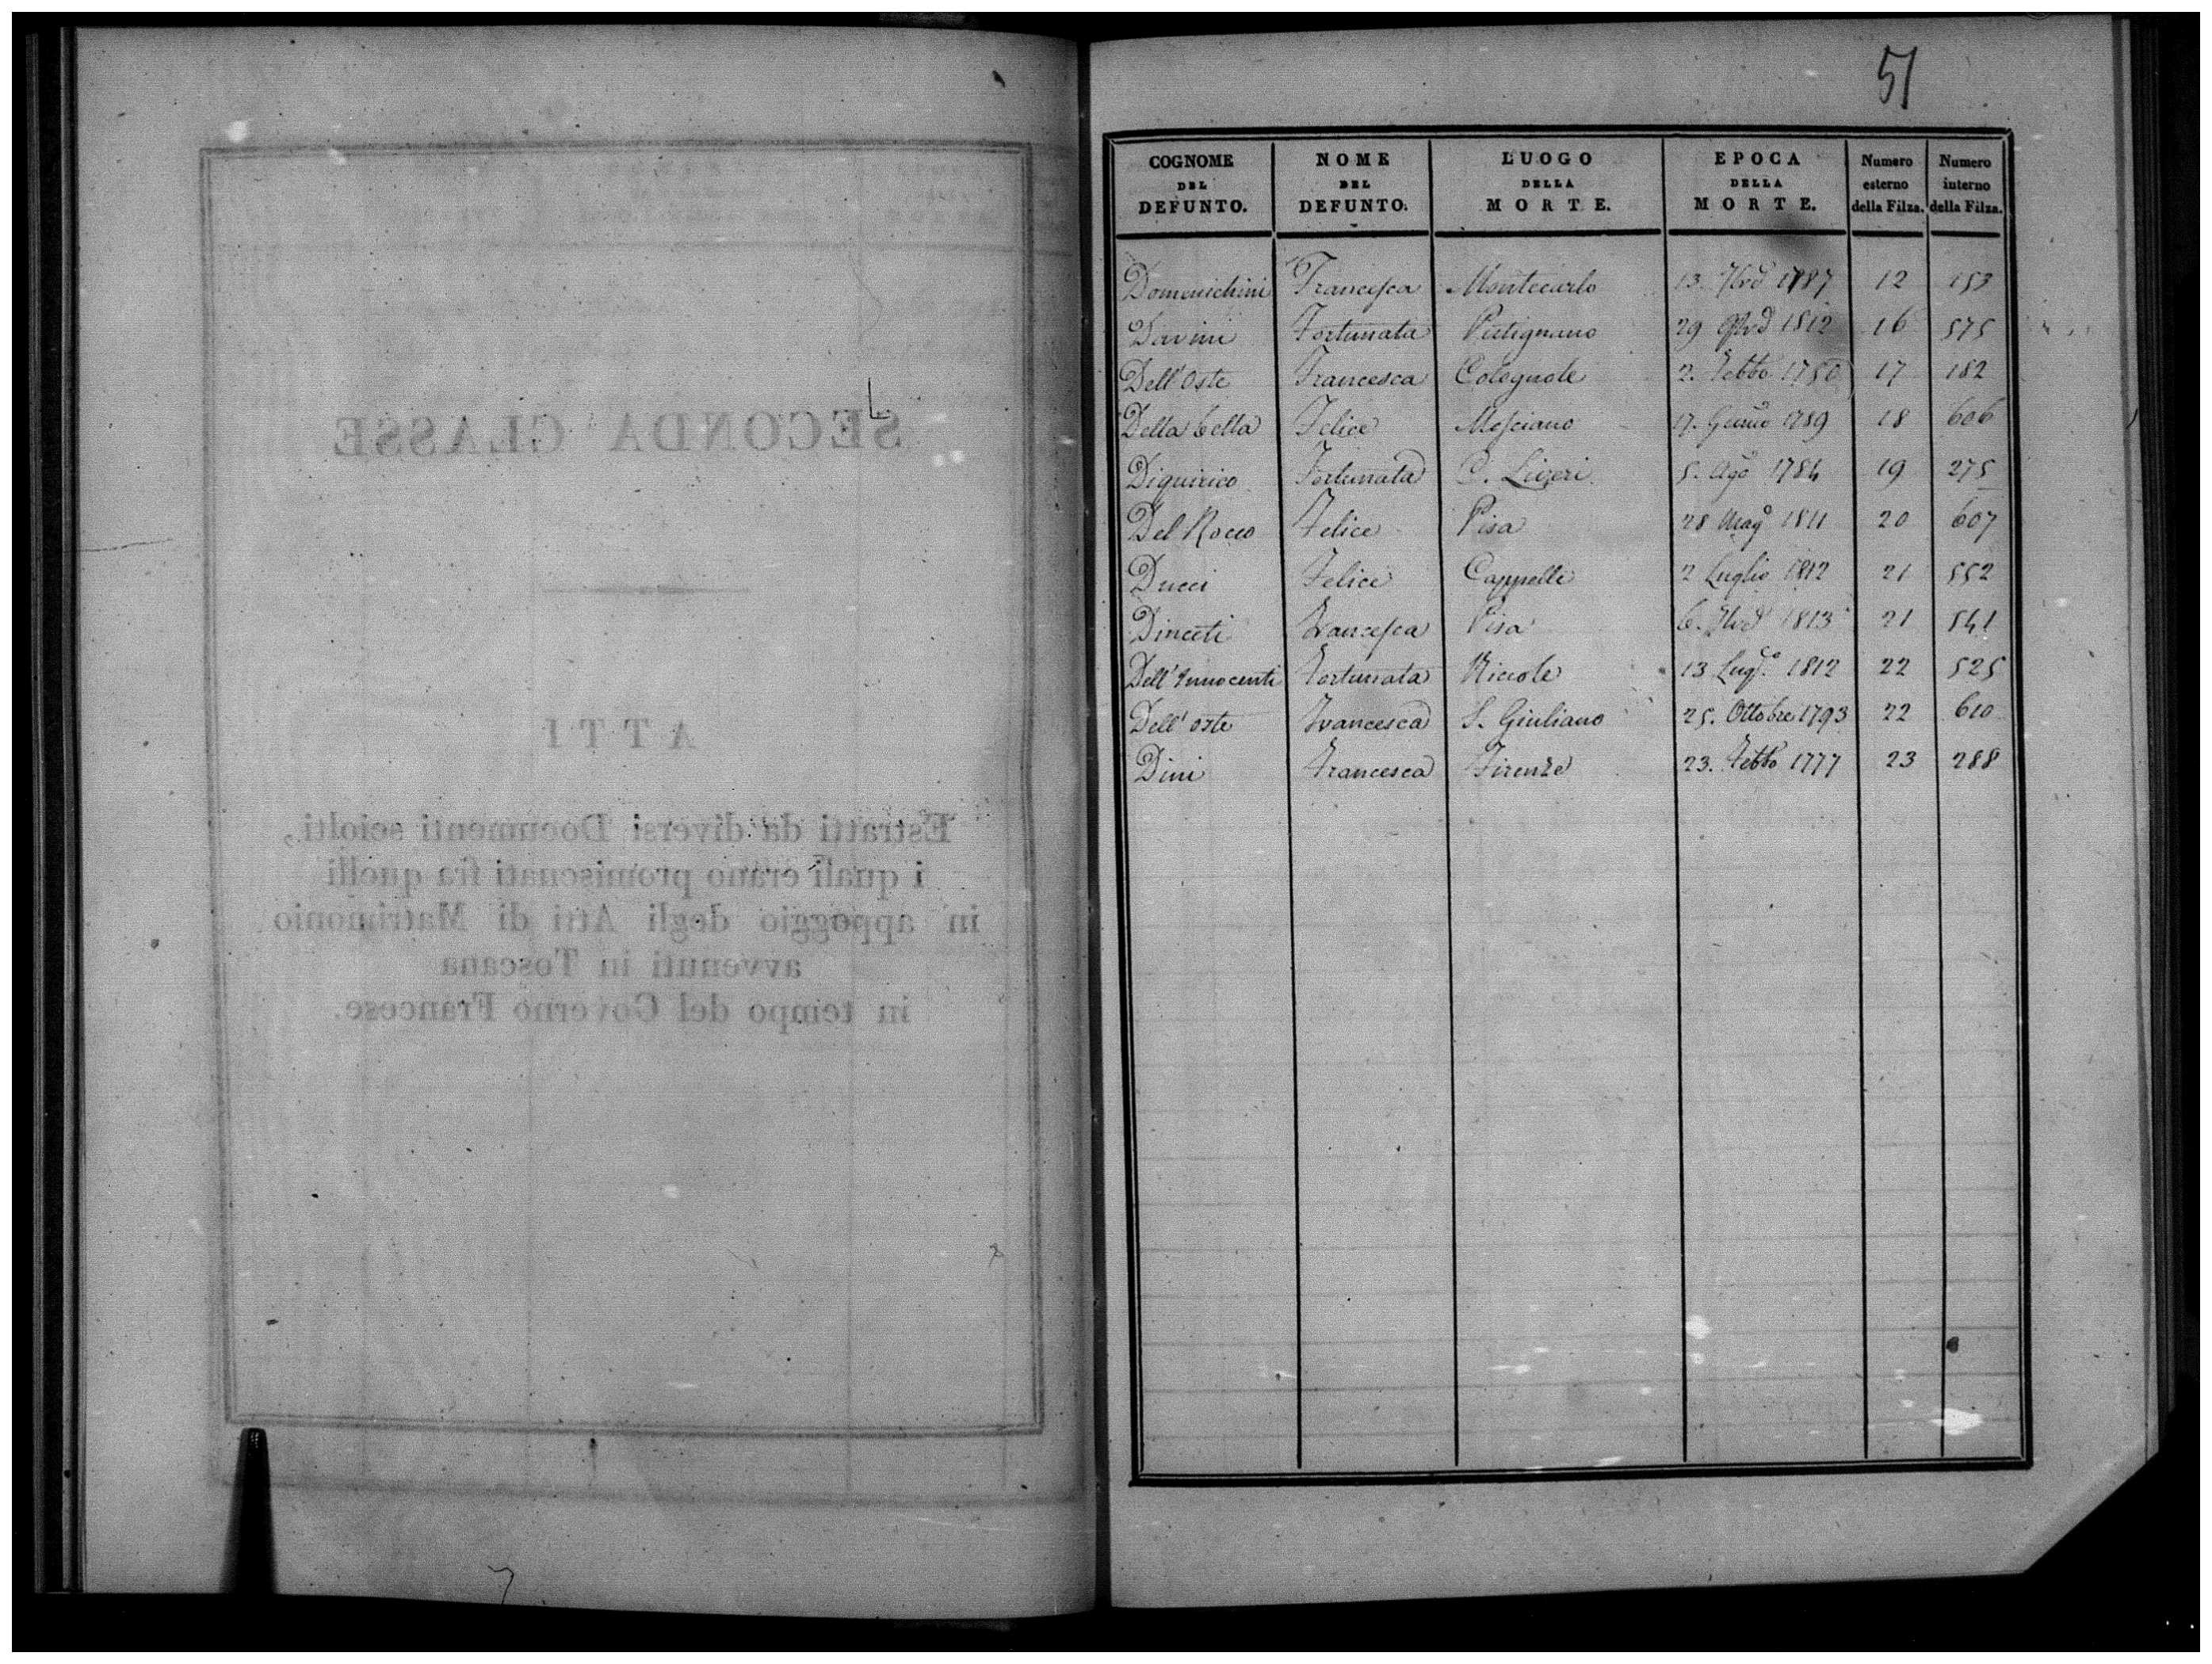 SECONDA CLASSE
ATTI
Estratti da diversi Documenti sciolti,
i quali erano promiscuati fra quelli
in appoggio degli Atti di Matrimonio
avvenuti in Toscana
in tempo del Governo Francese.
51
COGNOME DEL DEFUNTO. NOME DEL DEFUNTO. LUOGO DELLA MORTE. EPOCA DELLA MORTE. Numero esterno della Filza. Numero interno della Filza.
Domenichini Francesca Montecarlo 13. 1787 12 153
Davini Fortunata 29 1812 16 575
Dell'Oste Francesca Colognole 2. Febb.o 1750 17 182
Della bella Felice 17. 1789 18 606
Diquirico Fortunata Ligeri 5. Ago 1784 19 275
Del Rocco Felice Pisa 28 Mag.o 1811 20 607
Ducci Felice Cappelle 2 Luglio 1812 21 552
Francesca Pisa 6. 1813 21 541
Dell'Innocenti Fortunata 13 Lug.o 1812 22 525
Dell'oste Francesca S. Giuliano 25. Ottobre 1793 22 610
Dini Francesca Firenze 23. Febb.o 1777 23 288